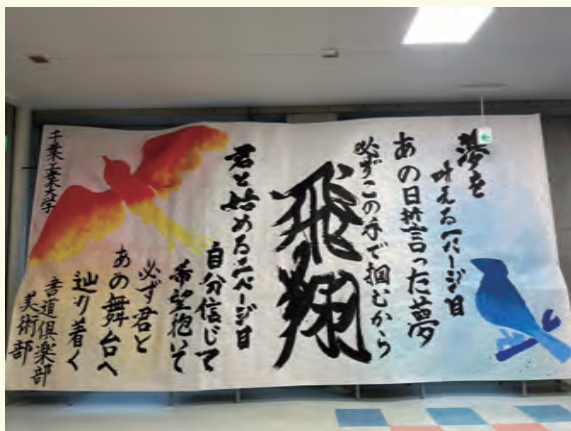 夢を
叶える一ページ目
あの日誓った夢
必ずこの手で掴むから
飛翔
君と始める二ページ目
自分信じて
希望抱いて
必ず君と
あの舞台へ
辿り着く
書道倶楽部
美術部
千葉工業大学